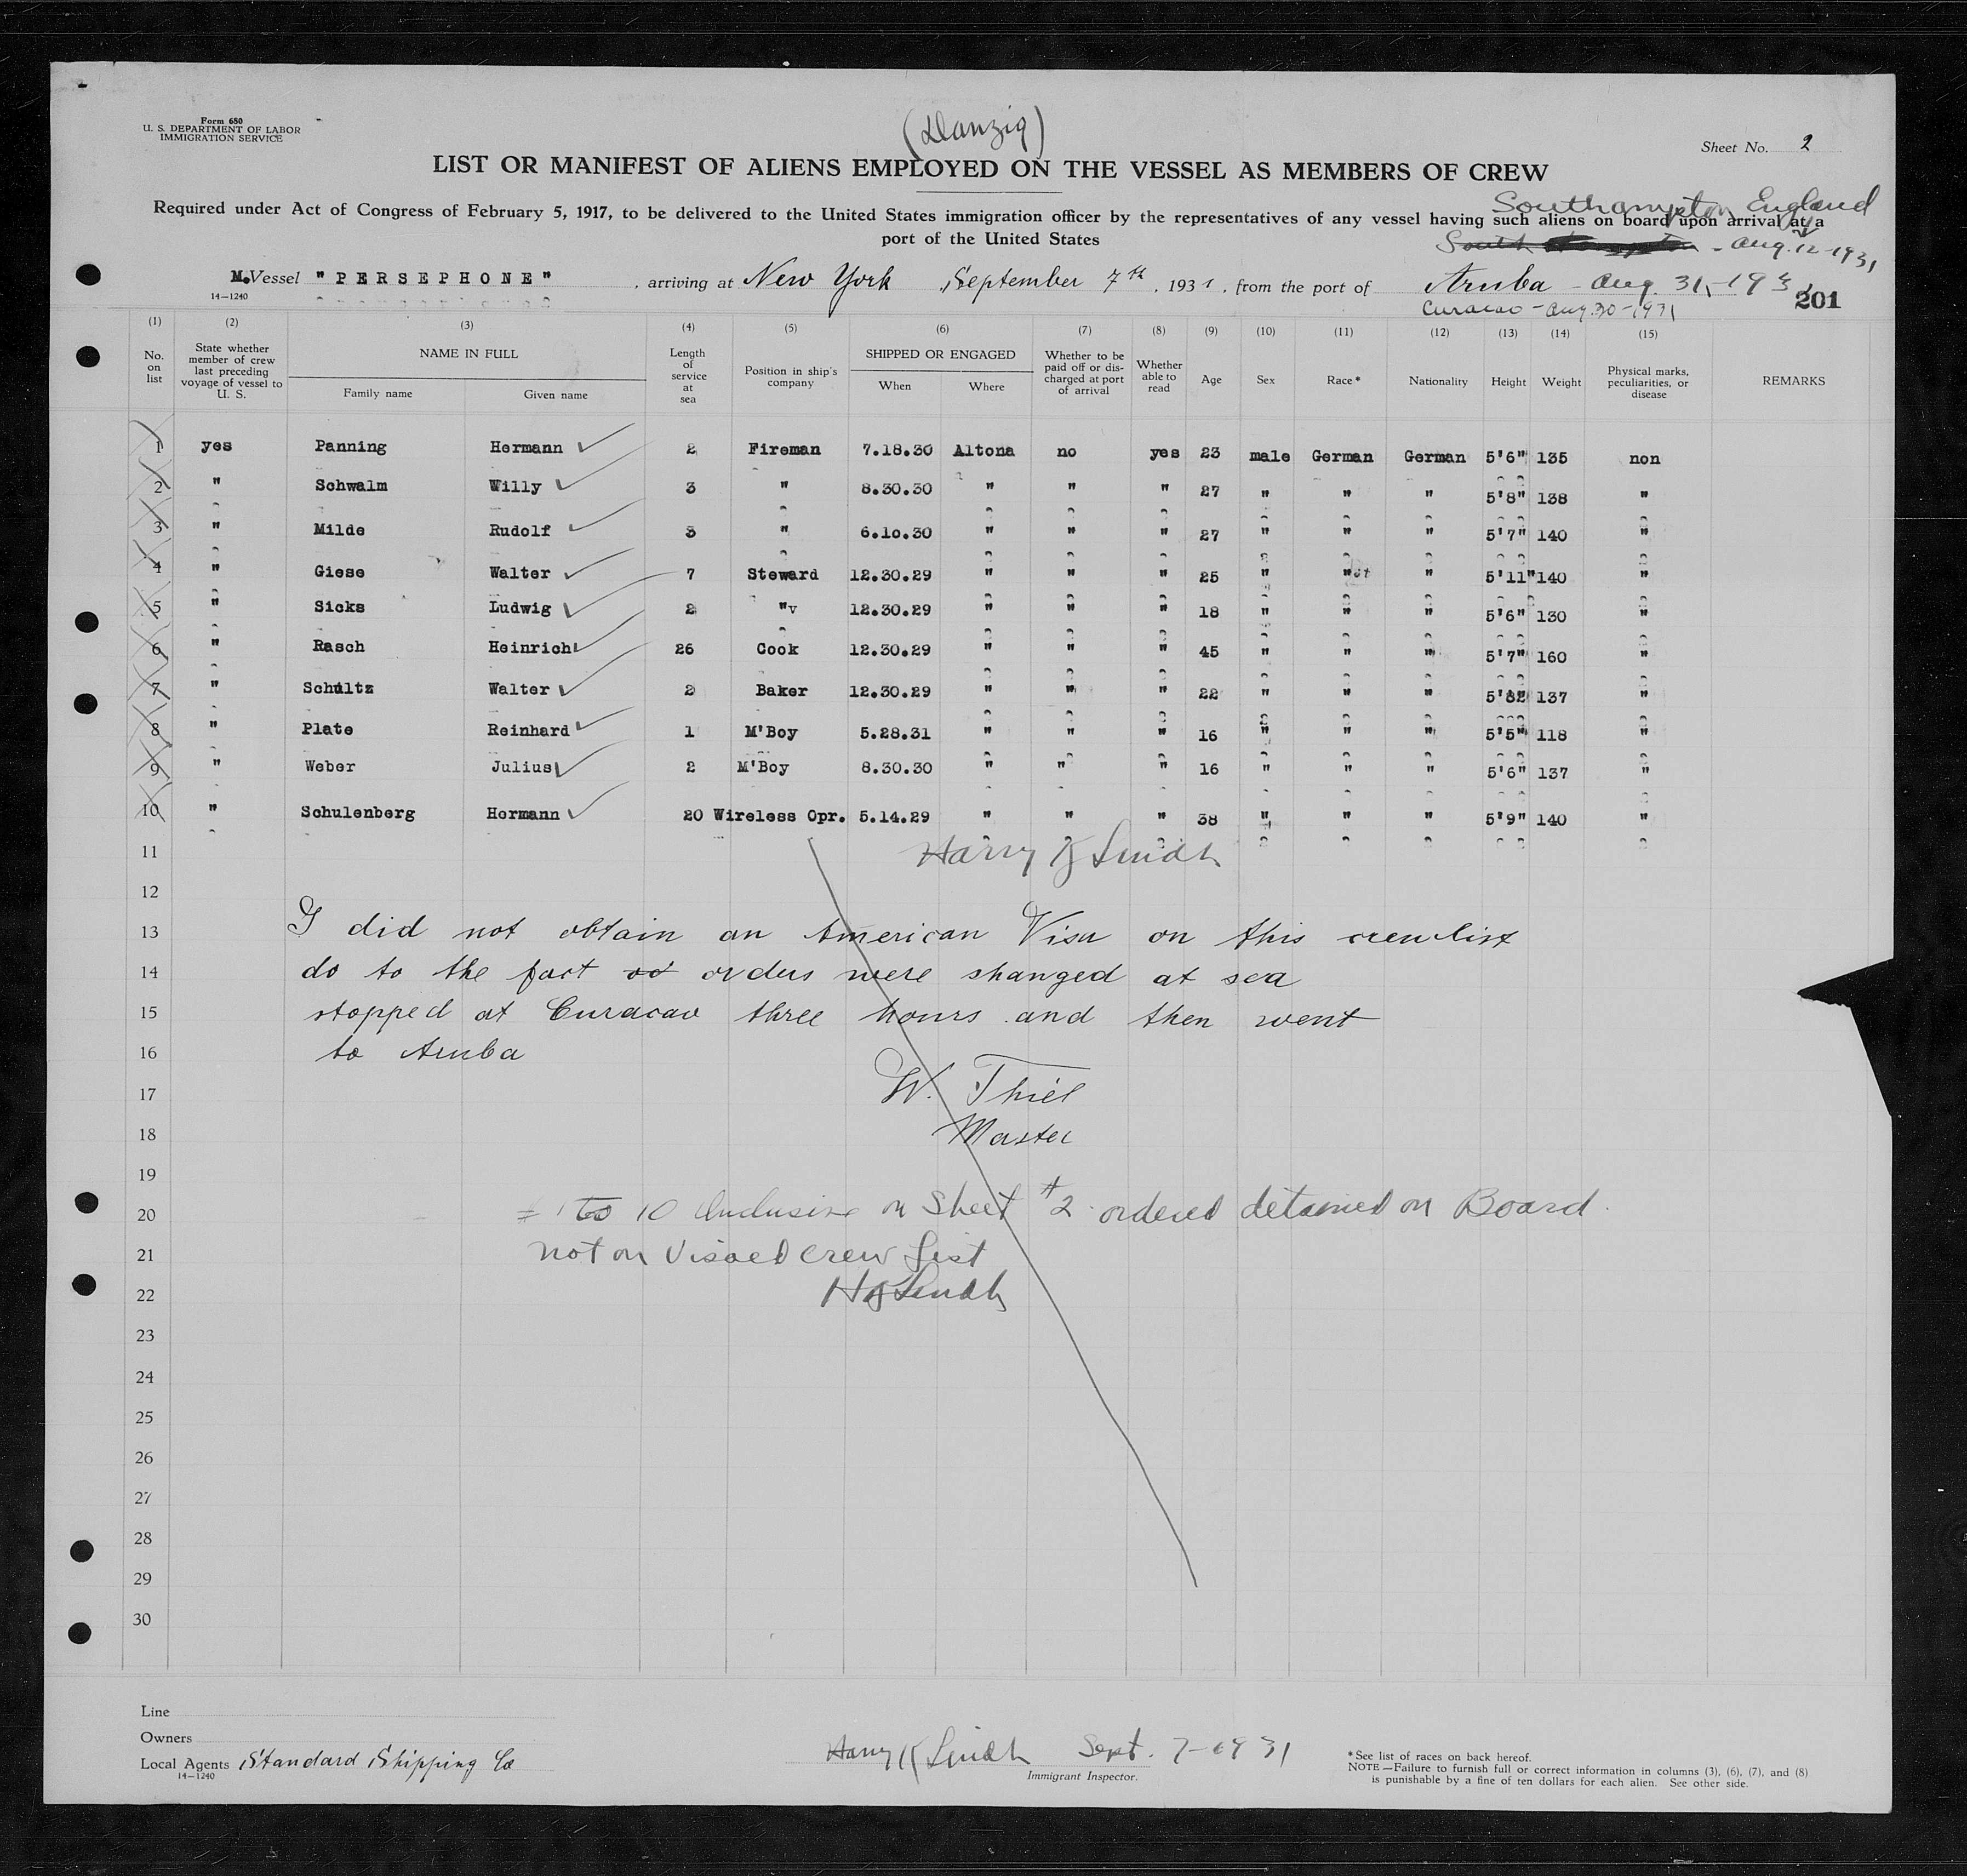 Form 680
U. S. DEPARTMENT OF LABOR
IMMIGRATION SERVICE
(Danzig)
Sheet No. 2
LIST OR MANIFEST OF ALIENS EMPLOYED ON THE VESSEL AS MEMBERS OF CREW
Southampton England
Required under Act of Congress of February 5, 1917, to be delivered to the United States immigration officer by the representatives of any vessel having such aliens on board upon arrival at a
port of the United States
- Aug. 12-1931
M. Vessel "PERSEPHONE" , arriving at New York , September 7th , 1931 , from the port of Aruba - Aug. 31, - 193
14—1240
Curacao - Aug. 30 - 1931
201
(1) (2) (3) (4) (5) (6) (7) (8) (9) (10) (11) (12) (13) (14) (15)
No. on list State whether member of crew last preceding voyage of vessel to U. S. NAME IN FULL Family name Given name Length of service at sea Position in ship's company SHIPPED OR ENGAGED When Where Whether to be paid off or discharged at port of arrival Whether able to read Age Sex Race* Nationality Height Weight Physical marks, peculiarities, or disease REMARKS
1 yes Panning Hermann 2 Fireman 7.18.30 Altona no yes 23 male German German 5'6" 135 non
2 " Schwalm Willy 3 " 8.30.30 " " " 27 " " " 5'8" 138 "
3 " Milde Rudolf 3 " 6.10.30 " " " 27 " " " 5'7" 140 "
4 " Giese Walter 7 Steward 12.30.29 " " " 25 " " " 5'11" 140 "
5 " Sicks Ludwig 2 "v 12.30.29 " " " 18 " " " 5'6" 130 "
6 " Rasch Heinrich 26 Cook 12.30.29 " " " 45 " " " 5'7" 160 "
7 " Schultz Walter 2 Baker 12.30.29 " " " 22 " " " 5'8" 137 "
8 " Plate Reinhard 1 M'Boy 5.28.31 " " " 16 " " " 5'5" 118 "
9 " Weber Julius 2 M'Boy 8.30.30 " " " 16 " " " 5'6" 137 "
10 " Schulenberg Hermann 20 Wireless Opr. 5.14.29 " " " 38 " " " 5'9" 140 "
11 Harry K Lindh
12
13 I did not obtain an American Visa on this crewlist
14 do to the fact od orders were shanged at sea
15 stopped at Curacao three hours and then went
16 to Aruba
17 W. Thiel
18 Master
19
20 1 to 10 Inclusive on Sheet #2 ordered detained on Board.
21 not on Visaed crew List
22 HK Lindh
23
24
25
26
27
28
29
30
Line
Owners
Local Agents Standard Shipping Co
14—1240
Harry K Lindh Sept. 7-1931
Immigrant Inspector.
*See list of races on back hereof.
NOTE.—Failure to furnish full or correct information in columns (3), (6), (7), and (8)
is punishable by a fine of ten dollars for each alien. See other side.